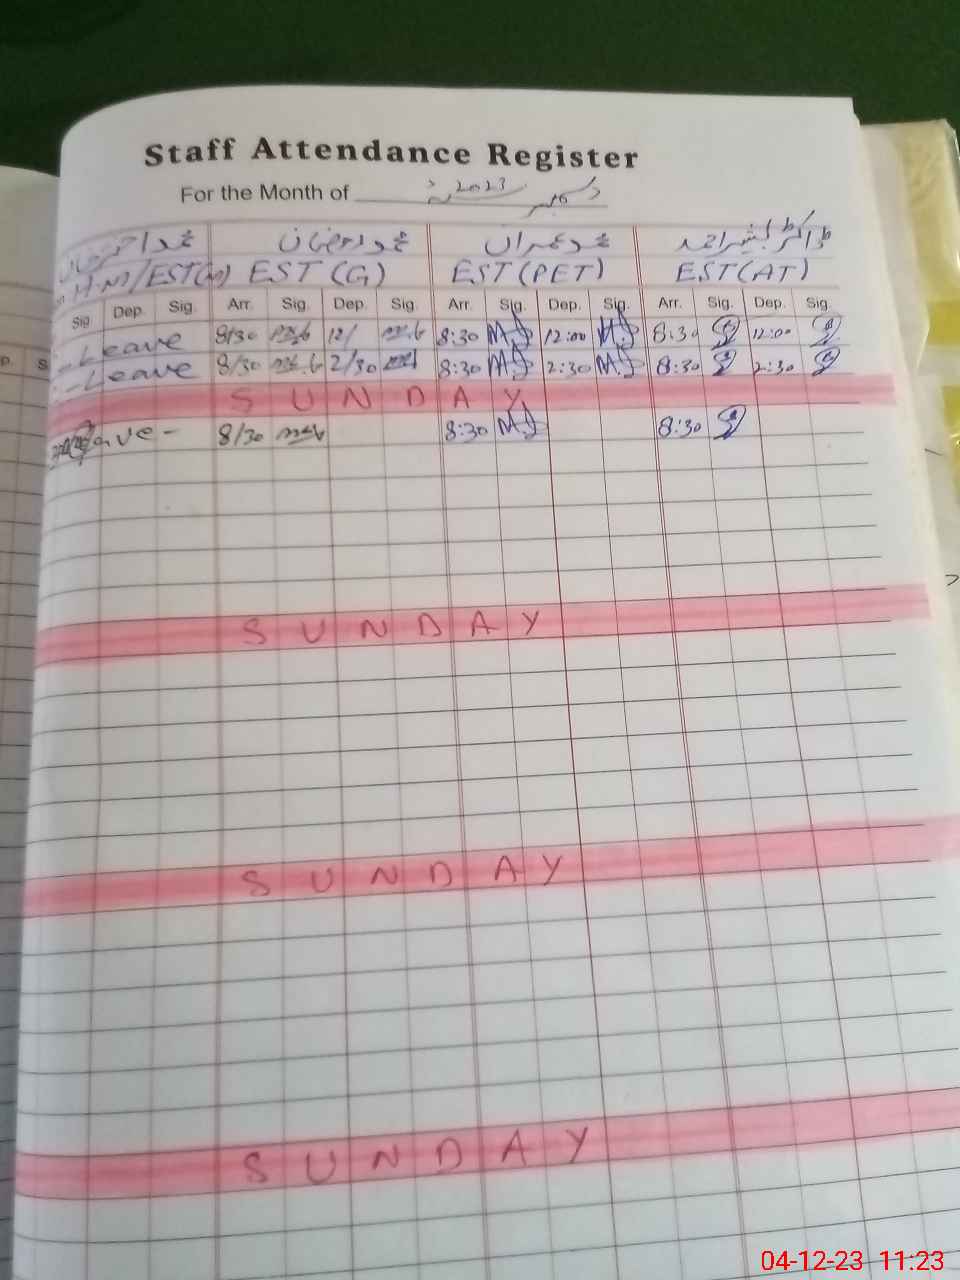 Staff Attendance Register
For the Month of دسمبر 2023ء
محمد عمران ڈاکٹر بشیر احمد
EST (G) EST (PET) EST (AT)
Sig. Dep. Sig. Arr. Sig. Dep. Sig. Arr. Sig. Dep. Sig. Arr. Sig. Dep. Sig.
-Leave 8/30 12/ 8:30 12:00 8:30 12:00
-Leave 8/30 2/30 8:30 2:30 8:30 2:30
SUNDAY
8/30 8:30 8:30
SUNDAY
SUNDAY
SUNDAY
04-12-23 11:23